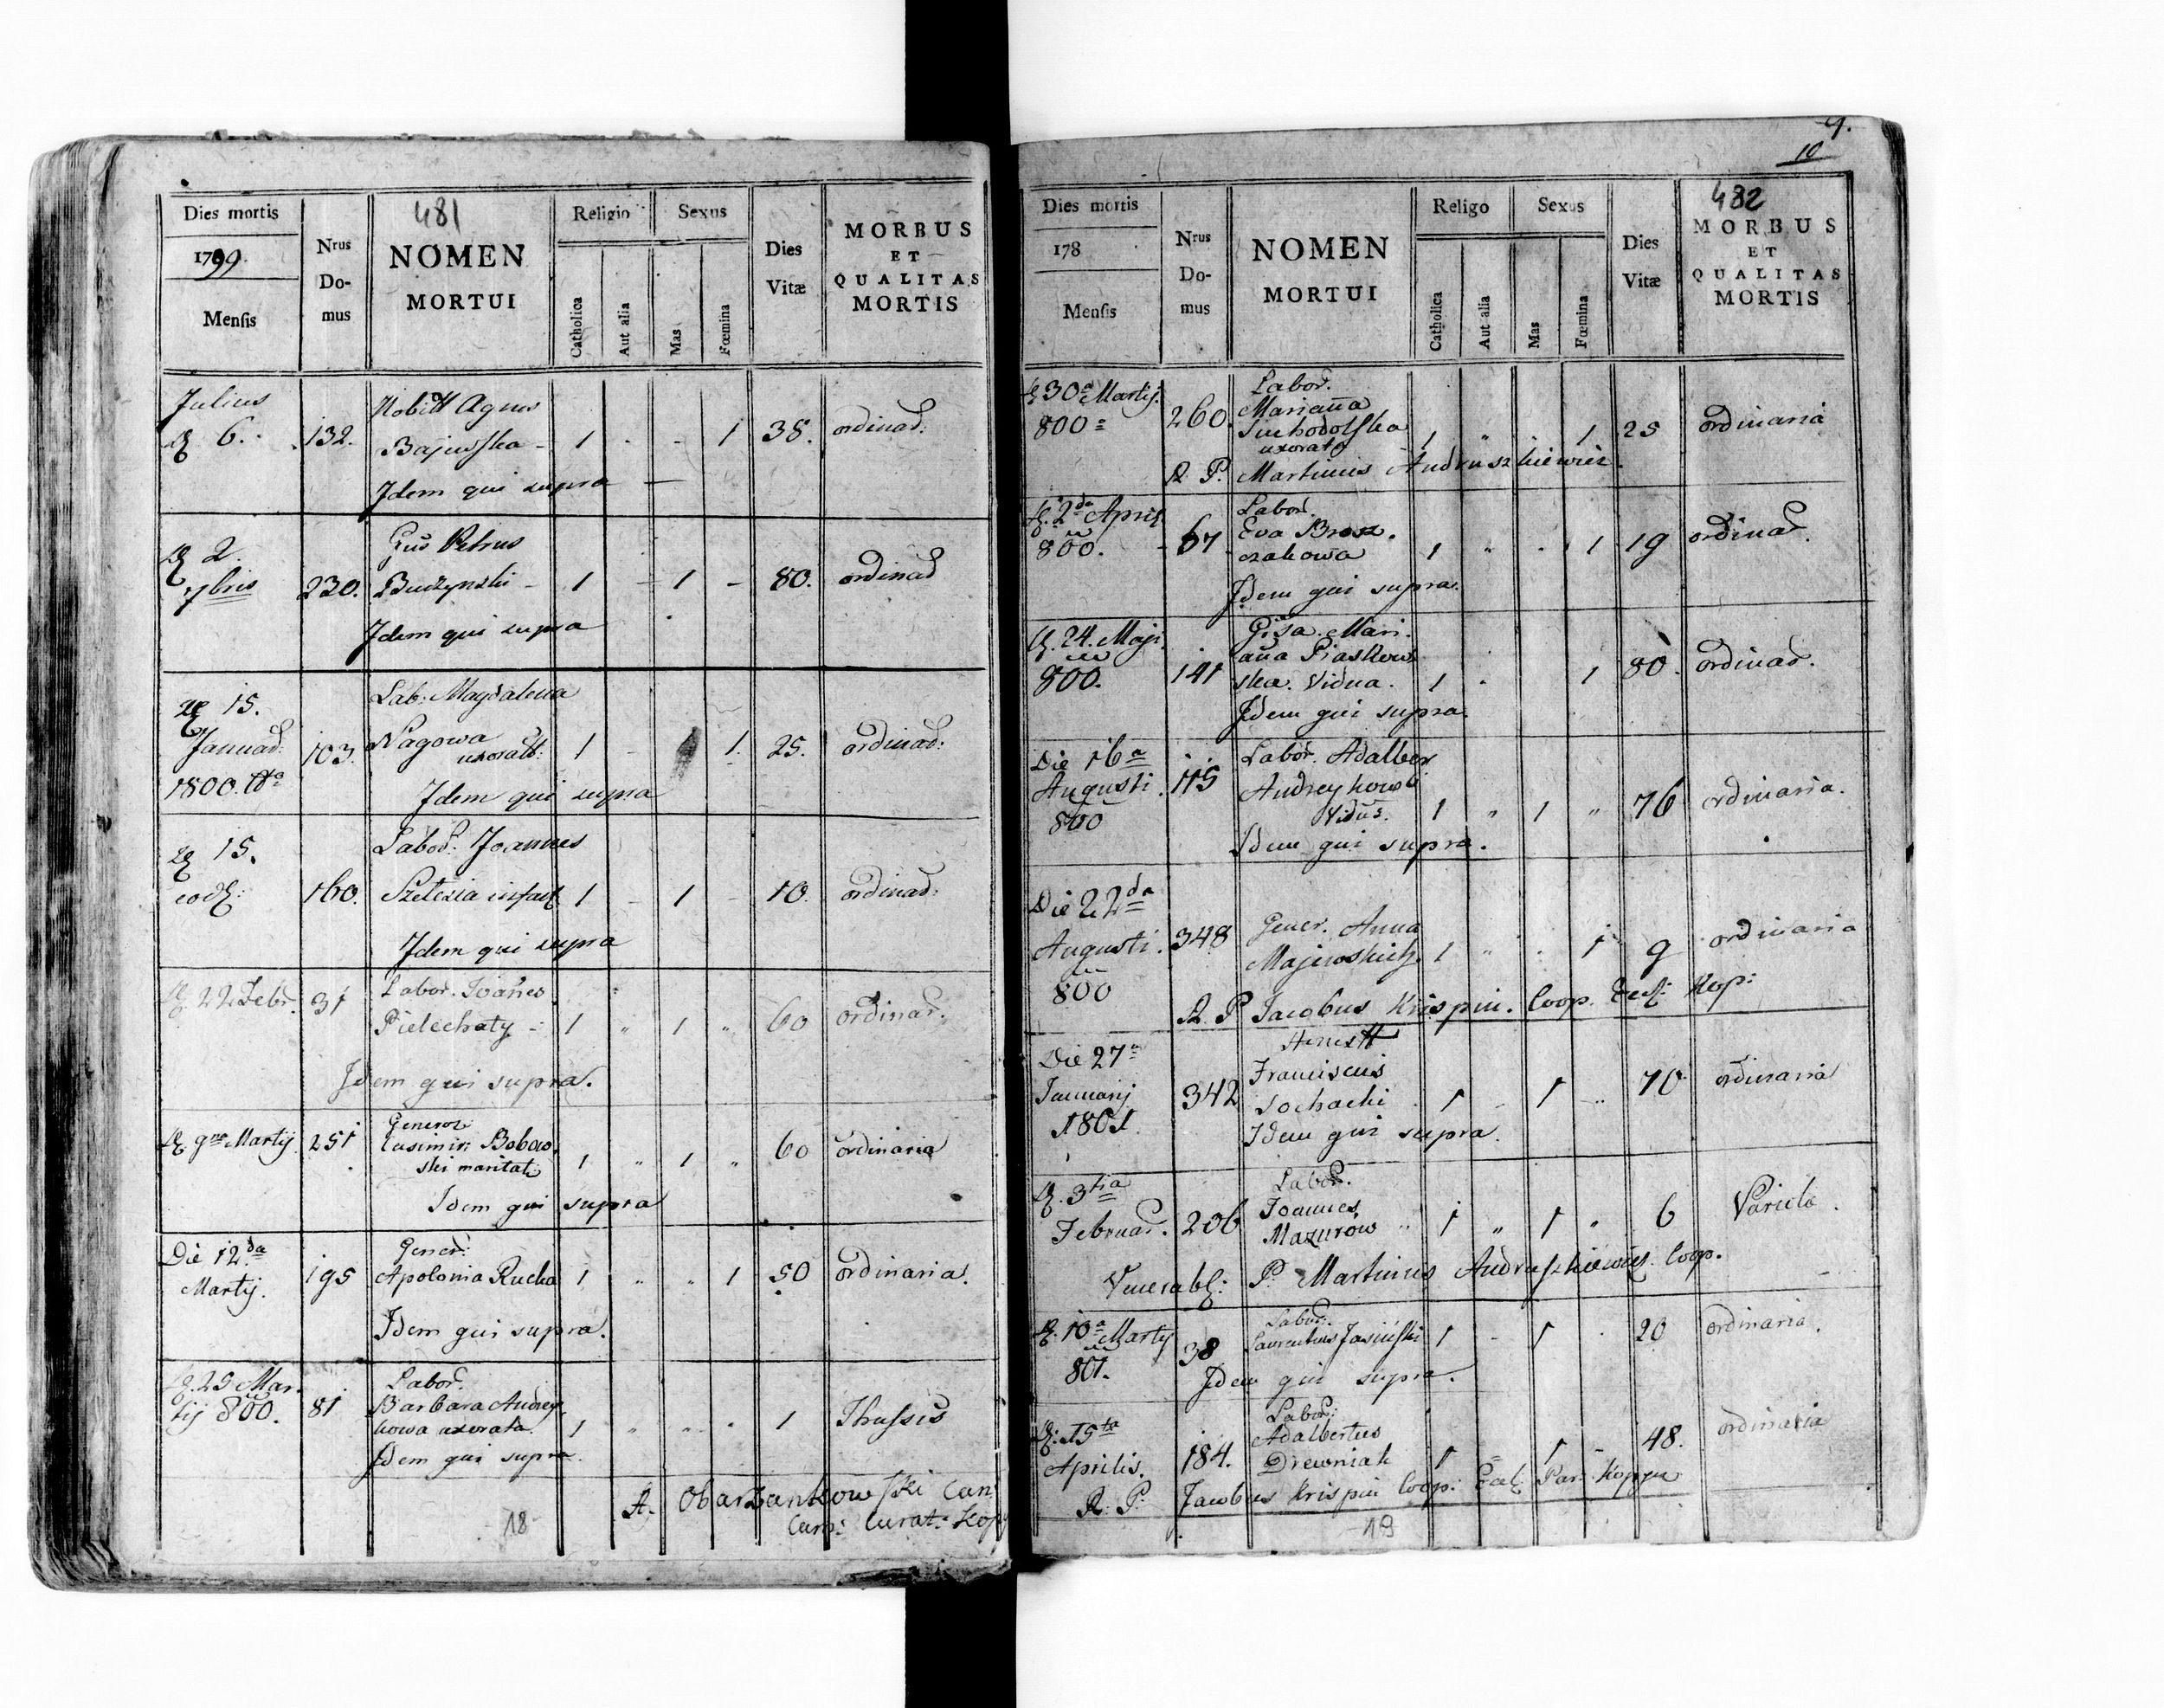 481
Dies mortis
1799
Mensis
Nrus Do-mus
NOMEN MORTUI
Religio
Catholica
Aut alia
Sexus
Mas
Fœmina
Dies Vitæ
MORBUS ET QUALITAS MORTIS
Julius
6. 132. Agnes
1 1 38. ordinar:
Idem qui supra
2.
7bris 230. Petrus
1 1 80. ordinar
Idem qui supra
15. Lab: Magdalena
Januar: 103. Nagowa
1800 1 1. 25. ordinar:
Idem qui supra
15. Labor: Joannes
160. 1 1 10. ordinar:
Idem qui supra
22 Febr. 31 Labor. Joañes
Pielechaty 1 1 60 ordinar.
Idem qui supra.
9na Martij 251 Generos
Casimir: Bobow
ski maritat 1 1 60 ordinaria
Idem qui supra
Die 12da Gener:
Martij. 195 Apolonia Rucka 1 1 50 ordinaria.
Idem qui supra.
25 Mar- Labor.
tij 800. 81 Barbara Andrey
kowa uxorata. 1 1 Thussis
Idem qui supra.
A. Obarzankowski Can:
Curat: Kop
18
9.
10
482
Dies mortis
178
Mensis
Nrus Do-mus
NOMEN MORTUI
Religo
Catholica
Aut alia
Sexus
Mas
Fœmina
Dies Vitæ
MORBUS ET QUALITAS MORTIS
30a Martij. Labor.
800 260. Mariaña
uxorata 1 1 25 ordinaria
R. P. Martinus Andruszkiewicz.
2da April Labor.
800. 67 Eva Brosz.
czakowa 1 1 19 ordinar.
Idem qui supra.
24. Maji Mari.
aña Piaskow
800. 141 ska. Vidua. 1 1 80. ordinar.
Idem qui supra.
Die 16a Labor. Adalber
Augusti. 115 Andreykows
800 Viduus. 1 1 76 ordinaria.
Idem qui supra.
Die 22da
Augusti. 348 Gener. Anna
800 1 1 9 ordinaria
R. P. Jacobus Krispin. Coop. Eccl: Kop:
Die 27a
Januarij 342 Franciscus
1801. Sochacki 1 1 70 ordinaria
Idem qui supra.
3tia Labor.
Februar. 206 Joannes
Mazurów 1 1 6 Variola.
Venerabl: P. Martinus Andruszkiewicz. Coop.
10a Marty Labor:
801. 38 Laurentius Jasiński 1 1 20 ordinaria.
Idem qui supra.
15ta Labor:
Aprilis. 184. Adalbertus
Drewniak 1 1 48. ordinaria
R. P. Jacobus Krispin Coop:
19